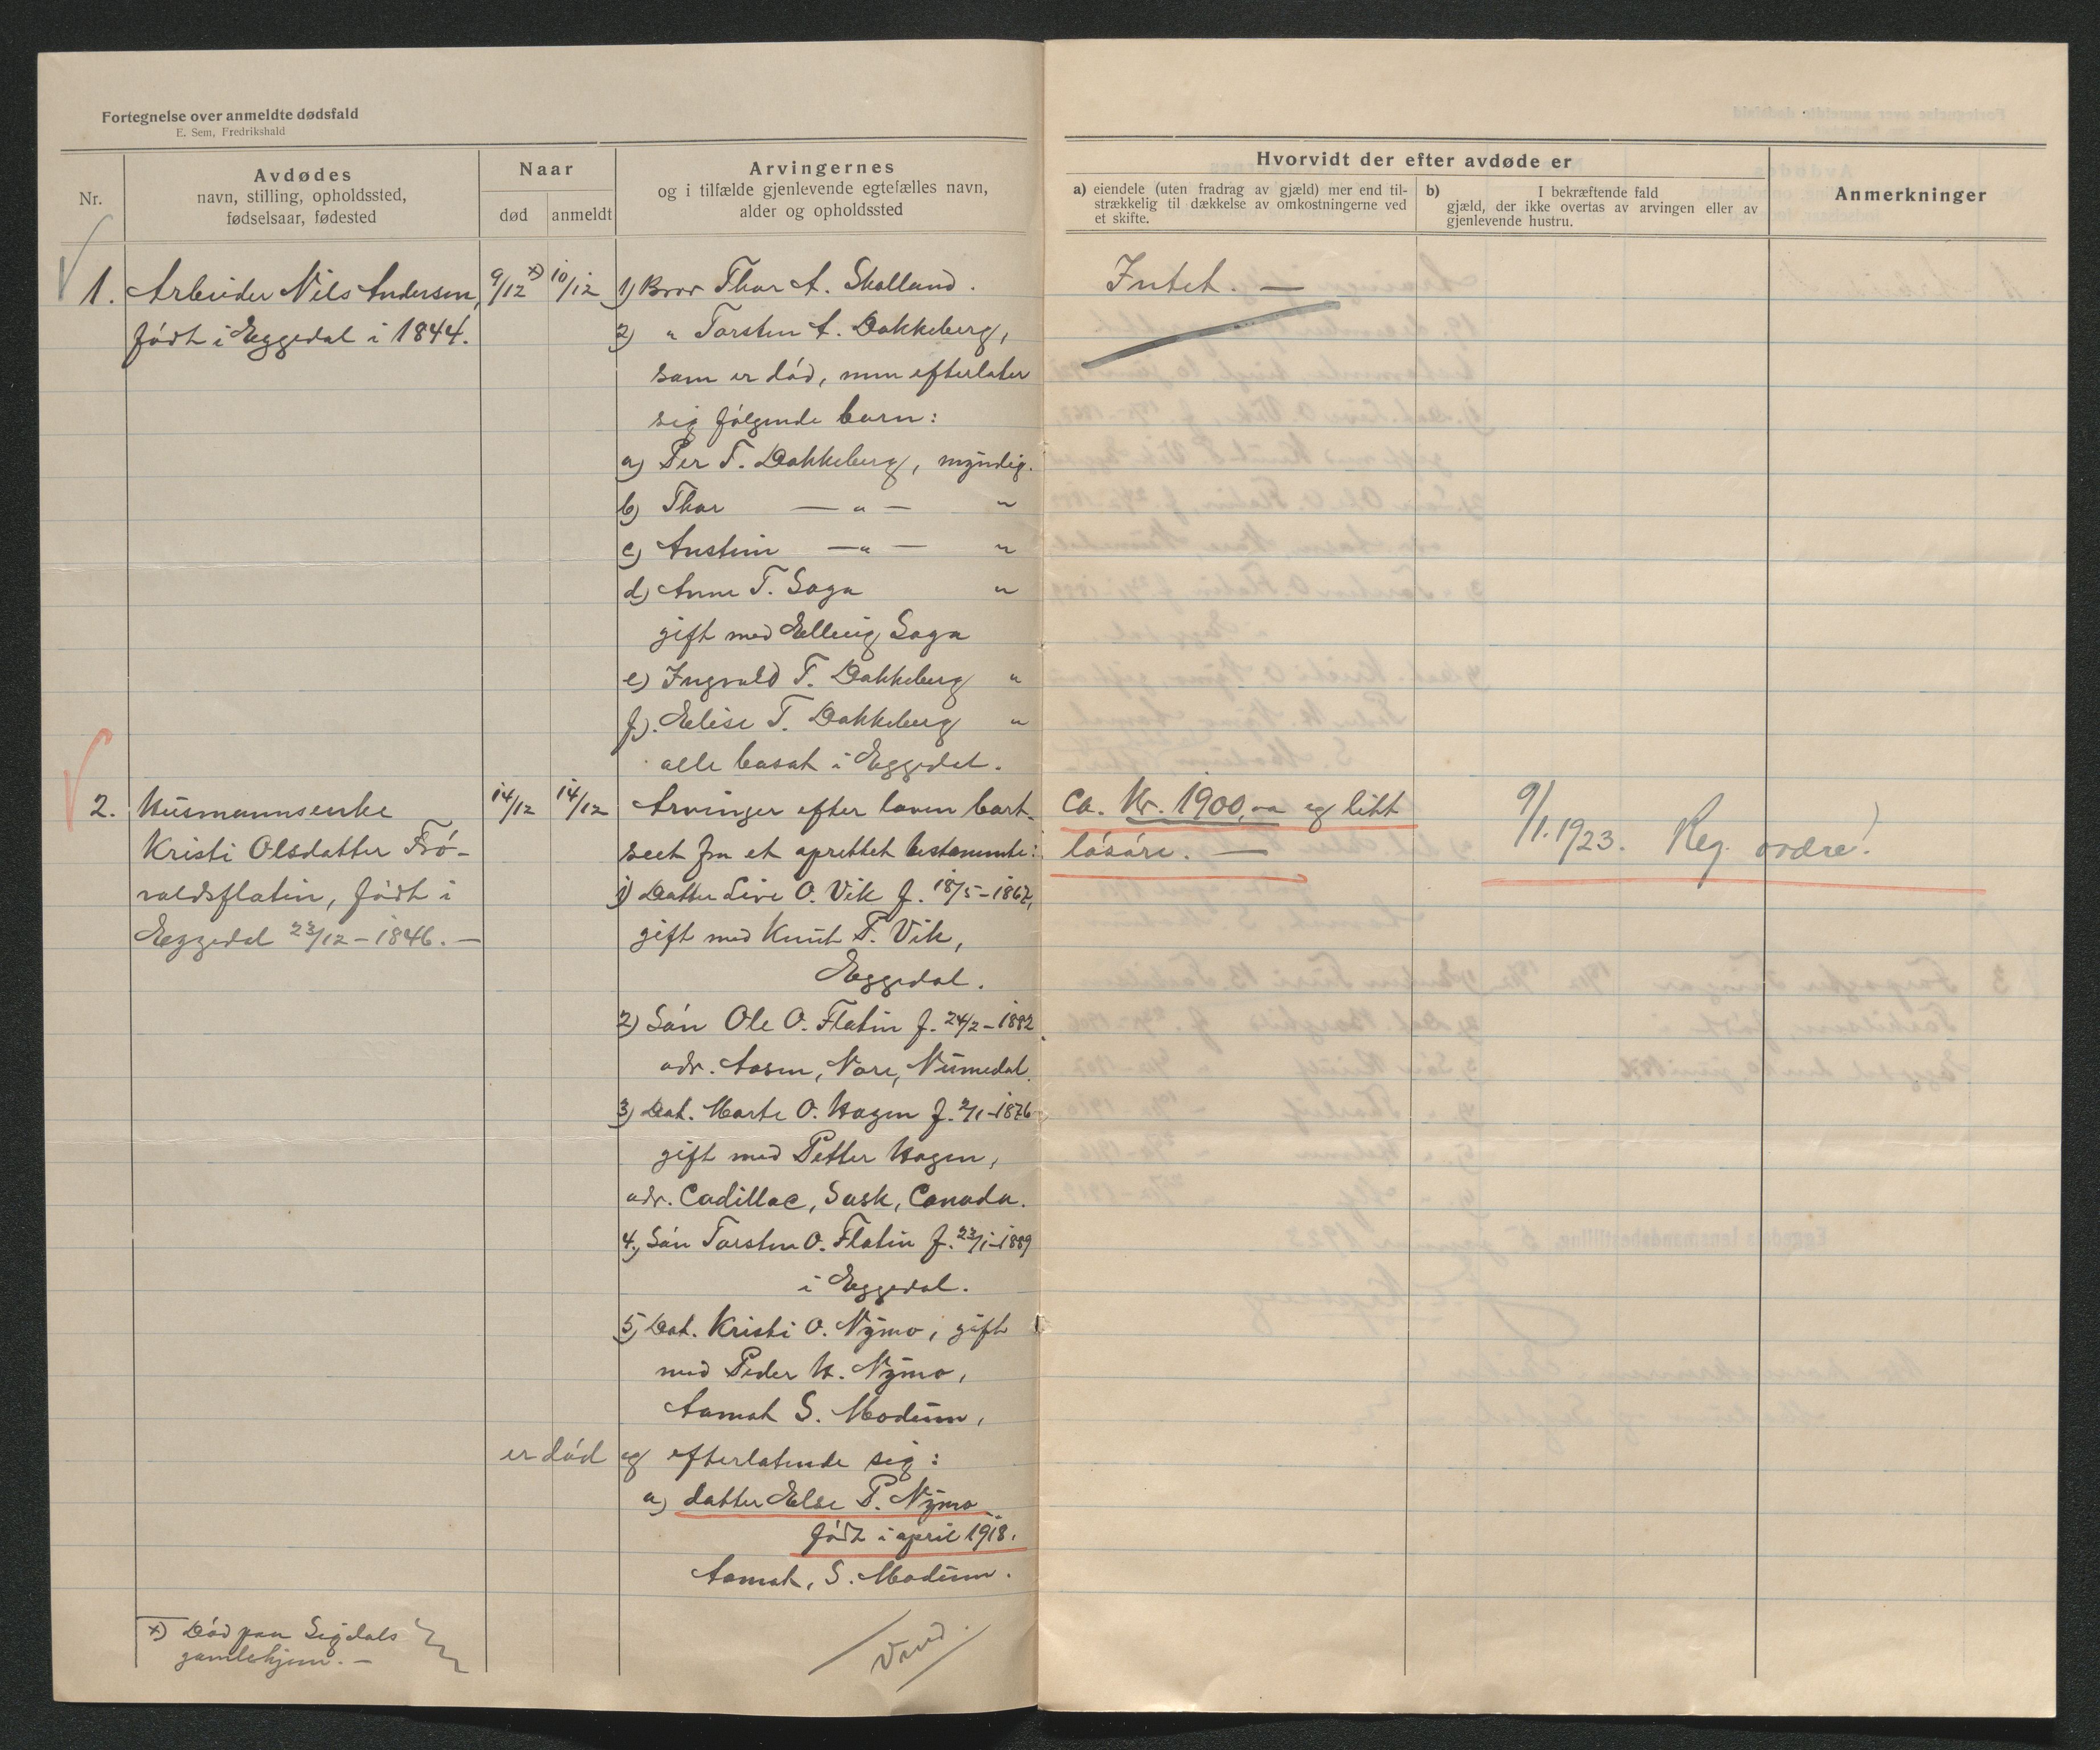 Fortegnelse over anmeldte dødsfald
E. Sem, Fredrikshald
Nr.
Avdødes
navn, stilling, opholdssted,
fødselsaar, fødested
Naar
død
anmeldt
Arvingernes
og i tilfælde gjenlevende egtefælles navn,
alder og opholdssted
Hvorvidt der efter avdøde er
a) eiendele (uten fradrag av gjæld) mer end til-
strækkelig til dækkelse av omkostningerne ved
et skifte.
b) I bekræftende fald
gjæld, der ikke overtas av arvingen eller av
gjenlevende hustru.
Anmerkninger
1. Arbeider Nils Andersen,
født i Eggedal i 1844.
9/12 x)
10/12
1) Bror Thor A. Skalland.
2) " Torsten A. Dokkeberg,
som er død, men efterlater
sig følgende barn:
a) Per T. Dokkeberg, myndig.
b) Thor — " — "
c) Austein — " — "
d) Anne T. Saga "
gift med Elling Saga
e) Ingvald T. Dokkeberg "
f). Elise T. Dokkeberg "
alle bosat i Eggedal.
Intet. —
2. Husmannsenke
Kristi Olsdatter Frø-
valdsflatin, født i
Eggedal 23/12 – 1846. —
14/12
14/12
Arvinger efter loven bort-
seet fra et oprettet testamente:
1) Datter Live O. Vik f. 18/5 – 1867,
gift med Knut P. Vik,
Eggedal.
2) Søn Ole O. Flatin f. 24/2 – 1882
adr. Aasen, Nore, Numedal.
3) Dat. Marte O. Hagen f. 2/1 – 1876
gift med Petter Hagen,
adr. Cadillac, Sask, Canada.
4, Søn Torsten O. Flatin f. 23/1 – 1889
i Eggedal.
5, Dat. Kristi O. Nymo, gift
med Peder H. Nymo,
Aamot S. Modum,
er død og efterlatende sig:
a) datter Else P. Nymo
født i april 1918.
Aamot, S. Modum.
Ca. Kr. 1900,00 og litt
løsøre. —
9/1. 1923. Reg. ordre!
x) Død paa Sigdals
gamlehjem. —
Vend.